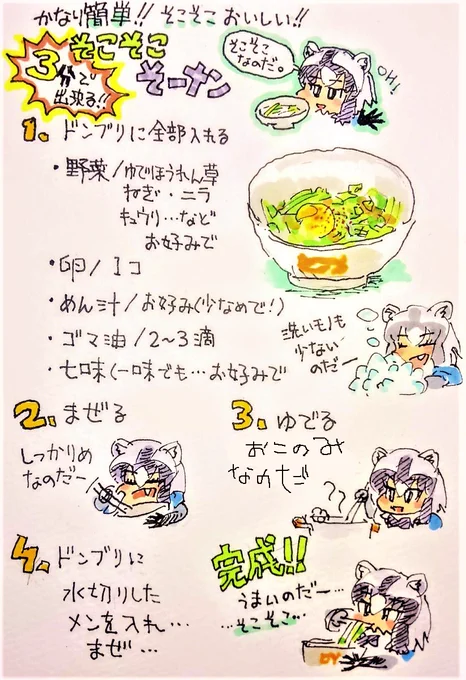 かなり簡単!! そこそこ おいしい!!
3分で
出来る!!
そこそこ
そーナン
そこそこ
なのだ。
OH!
1. ドンブリに全部入れる
・野菜/ゆでほうれん草
ねぎ・ニラ
キュウリ…など
お好みで
・卵/1コ
・めん汁/お好み(少なめで!)
・ゴマ油/2〜3滴
・七味(一味でも…お好みで
洗いモノも
少ない
のだー
2. まぜる
しっかりめ
なのだー
3. ゆでる
おこのみ
なのだ
??
4. ドンブリに
水切りした
メンを入れ…
まぜ…
完成!!
うまいのだー…
…そこそこ…